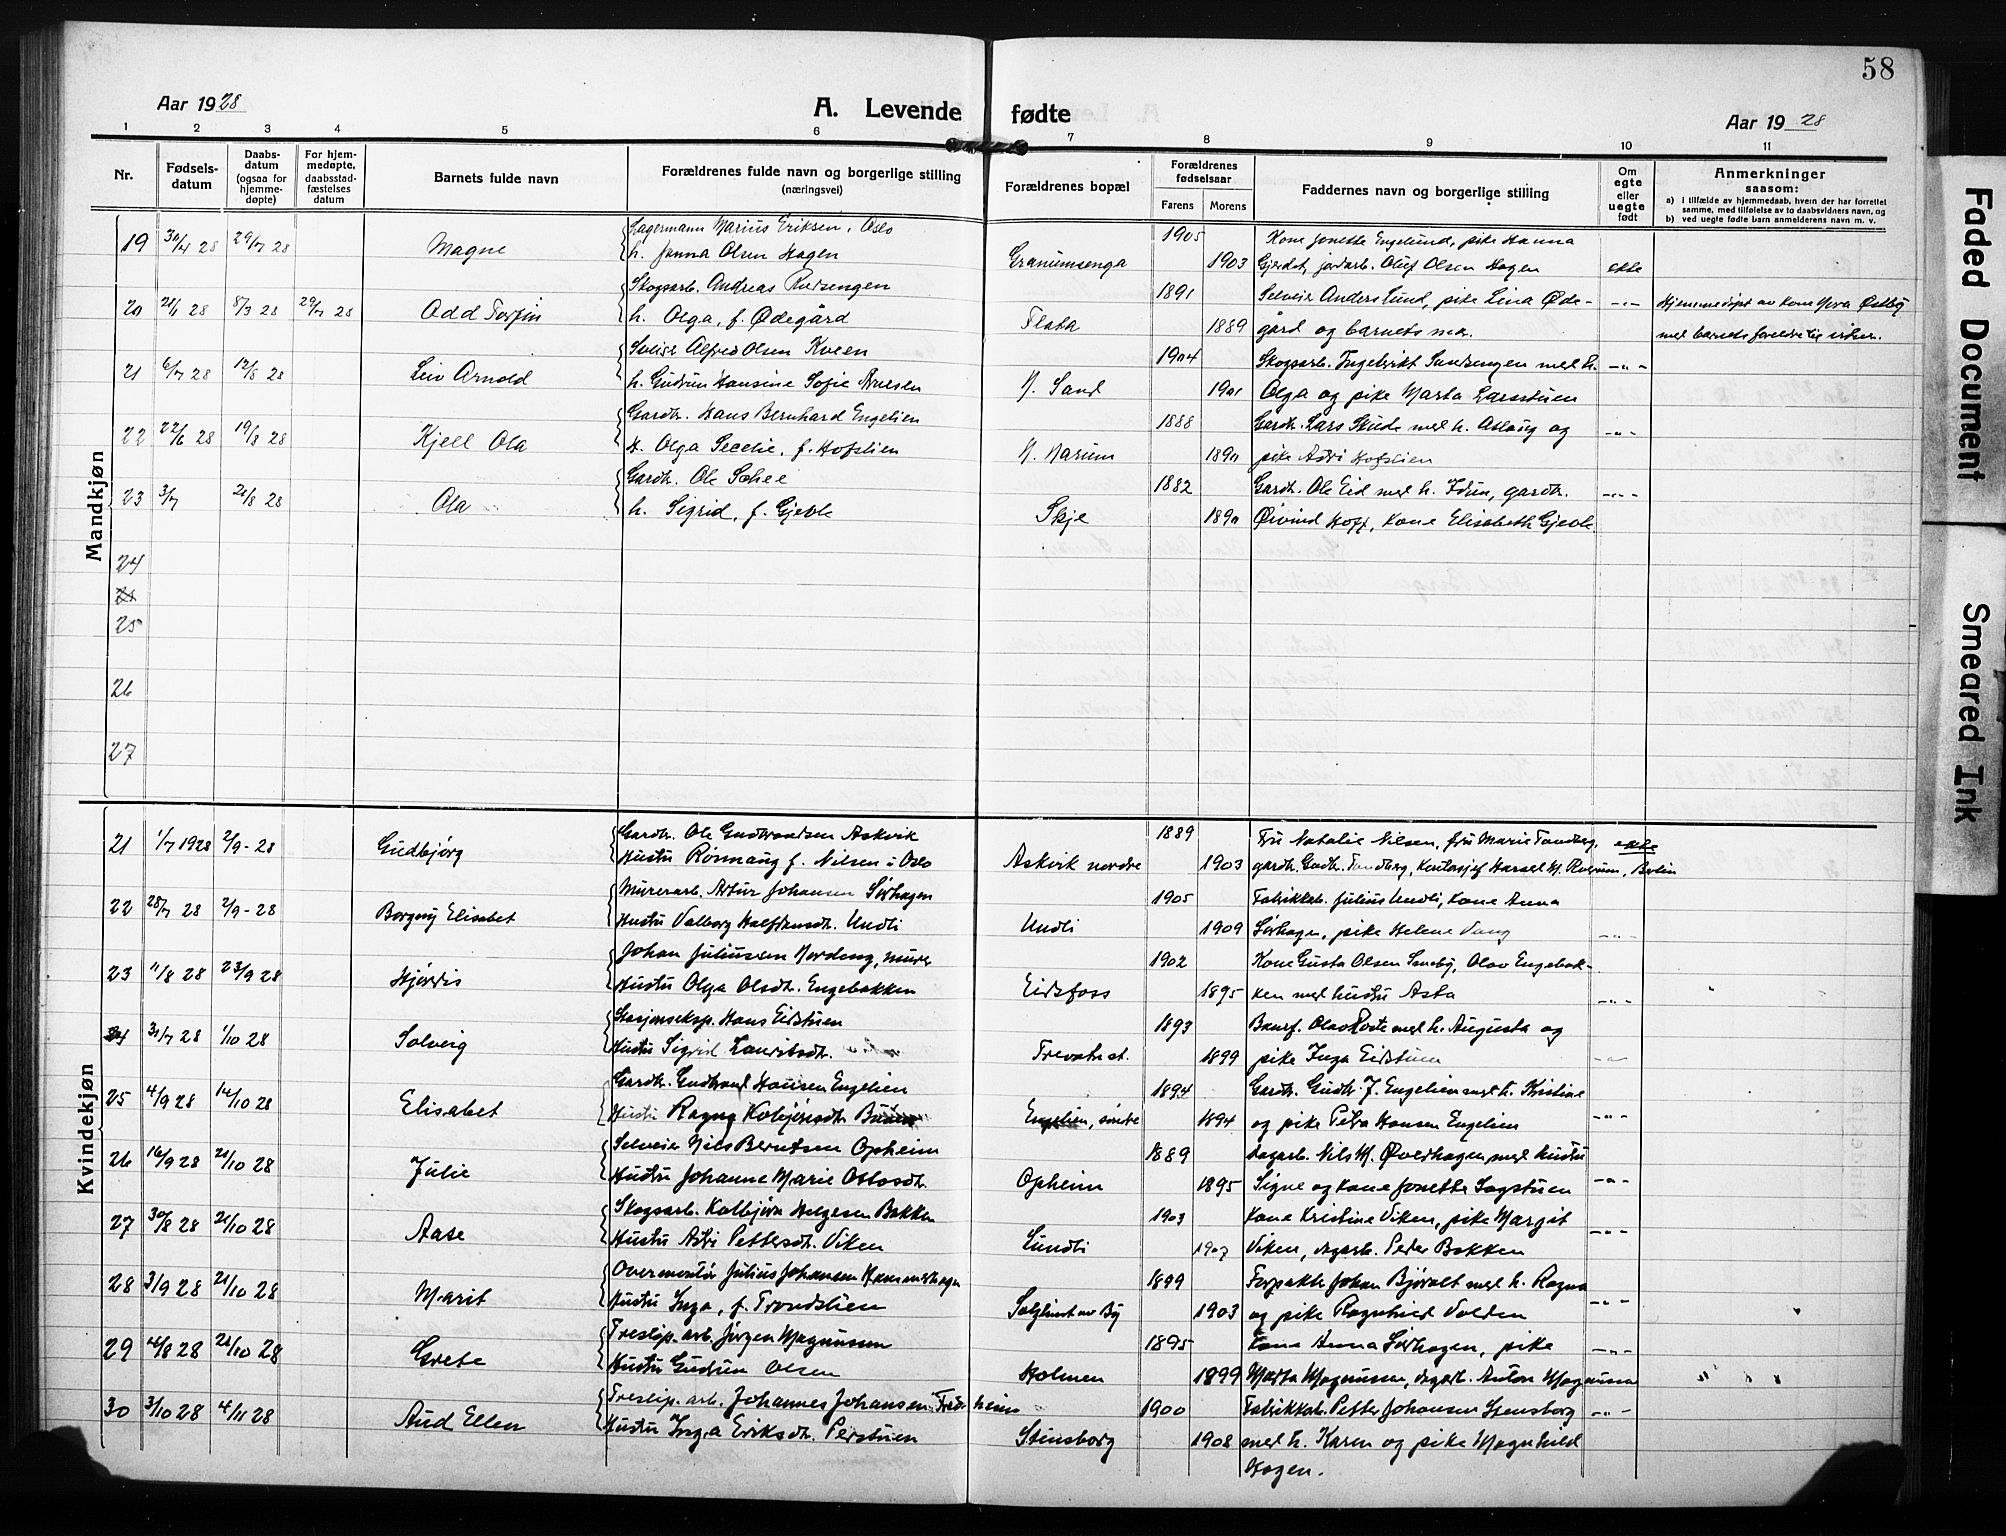 58
Aar 1928 A. Levende fødte Aar 1928
1 2 3 4 5 6 7 8 9 10 11
Nr.
Fødsels-datum
Daabs-datum (ogsaa for hjemme-døpte)
For hjem-medøpte, daabsstad-fæstelses datum
Barnets fulde navn
Forældrenes fulde navn og borgerlige stilling (næringsvei)
Forældrenes bopæl
Forældrenes fødselsaar
Farens Morens
Faddernes navn og borgerlige stilling
Om egte eller uegte født
Anmerkninger saasom:
a) i tilfælde av hjemmedaab, hvem der har forrettet samme, med tilføielse av to daabsvidners navn, og
b) ved uegte fødte barn anmelderens navn m. v.
Mandkjøn
Lagermann Marius Eriksen, Oslo 1905 Kone Jonette Engelund, pike Hanna
19 30/4 28 29/7 28 Magne h. Janna Olsen Hagen Granumsenga 1903 Gjerdet, jordarb. Oluf Olsen Hagen ekte
Skogsarb. Andreas 1891 Selveier Anders Lund, pike Lina Øde-
20 21/1 28 8/3 28 29/7 28 Odd Torfin h. Olga, f. Ødegård Flata 1889 gård og barnets mor. Hjemmedøpt av Kone Østby
med barnets foreldre til vitner.
Alfred Olsen Kveen 1904 Skogsarb. Ingebrikt Sandengen med h.
21 6/7 28 12/8 28 Leiv Arnold h. Gudrun Hansine Sofie N. Sand 1901 Olga og pike Marta Larsstuen
Gardbr. Hans Bernhard Engelien 1888 Gardb. Lars Skude med h. Aslaug og
22 22/6 28 19/8 28 Kjell Ola h. Olga Secelie, f. Hofslien N. Narum 1890 pike Astri Hofslien
Gardbr. Ole Schee 1882 Gardbr. Ole Eid med h. Idun, gardbr.
23 3/7 21/8 28 Ola h. Sigrid, f. Gjevle Skje 1890 Øivind Hoff, Kone Elisabeth Gjevle
24
25
26
27
Kvindekjøn
Gardbr. Ole Gudbrandsen Askvik 1889 Fru Natalie Nilsen, fru Marie Tandberg, ekte
21 1/7 1928 2/9-28 Gudbjørg Hustru Rønnaug f. Nilsen i Oslo Askvik nordre 1903 gardb. Gudb. Tandberg, Berlin
Murerarb. Artur Johansen Sørhagen 1905 Fabrikkab. Julius Undli, Kone Anna
22 28/7 28 2/9-28 Borgny Elisabet Hustru Valborg Halfdansdtr. Undli Undli 1909 Sørhagen, pike Helene Vang
Johan Juliussen Nordeng, murer 1902 Kone Gusta Olsen Seneby, Olav Engebak-
23 11/8 28 23/9 28 Hjørdis Hustru Olga Olsdtr. Engebakken Eidsfoss 1895 ken med hustru Asta
Stasjonseksp. Hans Eidstuen 1893 Banef. Olav med h. Augusta og
24 31/7 28 1/10 28 Solveig Hustru Sigrid Lauritsdtr. Trevatn st. 1899 pike Inga Eidstuen
Gardbr. Gudbrand Hansen Engelien 1894 Gardbr. Gudbr. J. Engelien med h. Kristine
25 4/9 28 14/10 28 Elisabet Hustru Ragna Kolbjørnsdtr. Engelien, søndre 1894 og pike Petra Hansen Engelien
Selveier Nils Berntsen Opheim 1889 dagarb. Nils M. Øverhagen med hustru
26 16/9 28 21/10 28 Julie Hustru Johanne Marie Ottosdtr. Opheim 1895 Signe og kone Jonette Sagstuen
Skogsarb. Kolbjørn Helgesen Bakken 1903 Kone Kristine Viken, pike Margit
27 30/8 28 21/10 28 Aase Hustru Astri Pettersdtr. Viken Lundli 1907 Viken, dagarb. Peder Bakken
Overmontør Julius Johansen Hammerhagen 1899 Forpakter Johan med h. Ragna
28 3/9 28 21/10 28 Marit Hustru Inga, f. Trondslien 1903 og pike Ragnhild Volden
Treslip. arb. Jørgen Magnussen 1895 Kone Anna Sørhagen, pike
29 4/8 28 21/10 28 Grete Hustru Gudrun Olsen Holmen 1899 Marta Magnussen, dagarb. Anton Magnussen
Treslip. arb. Johannes Johansen Fredheim 1900 Fabrikkab. Petter Johansen Stensborg
30 3/10 28 4/11 28 Aud Ellen Hustru Inga Eriksdtr. Perstuen Stensborg 1908 med h. Karen og pike Magnhild
Hagen.
Faded Document
Smeared Ink